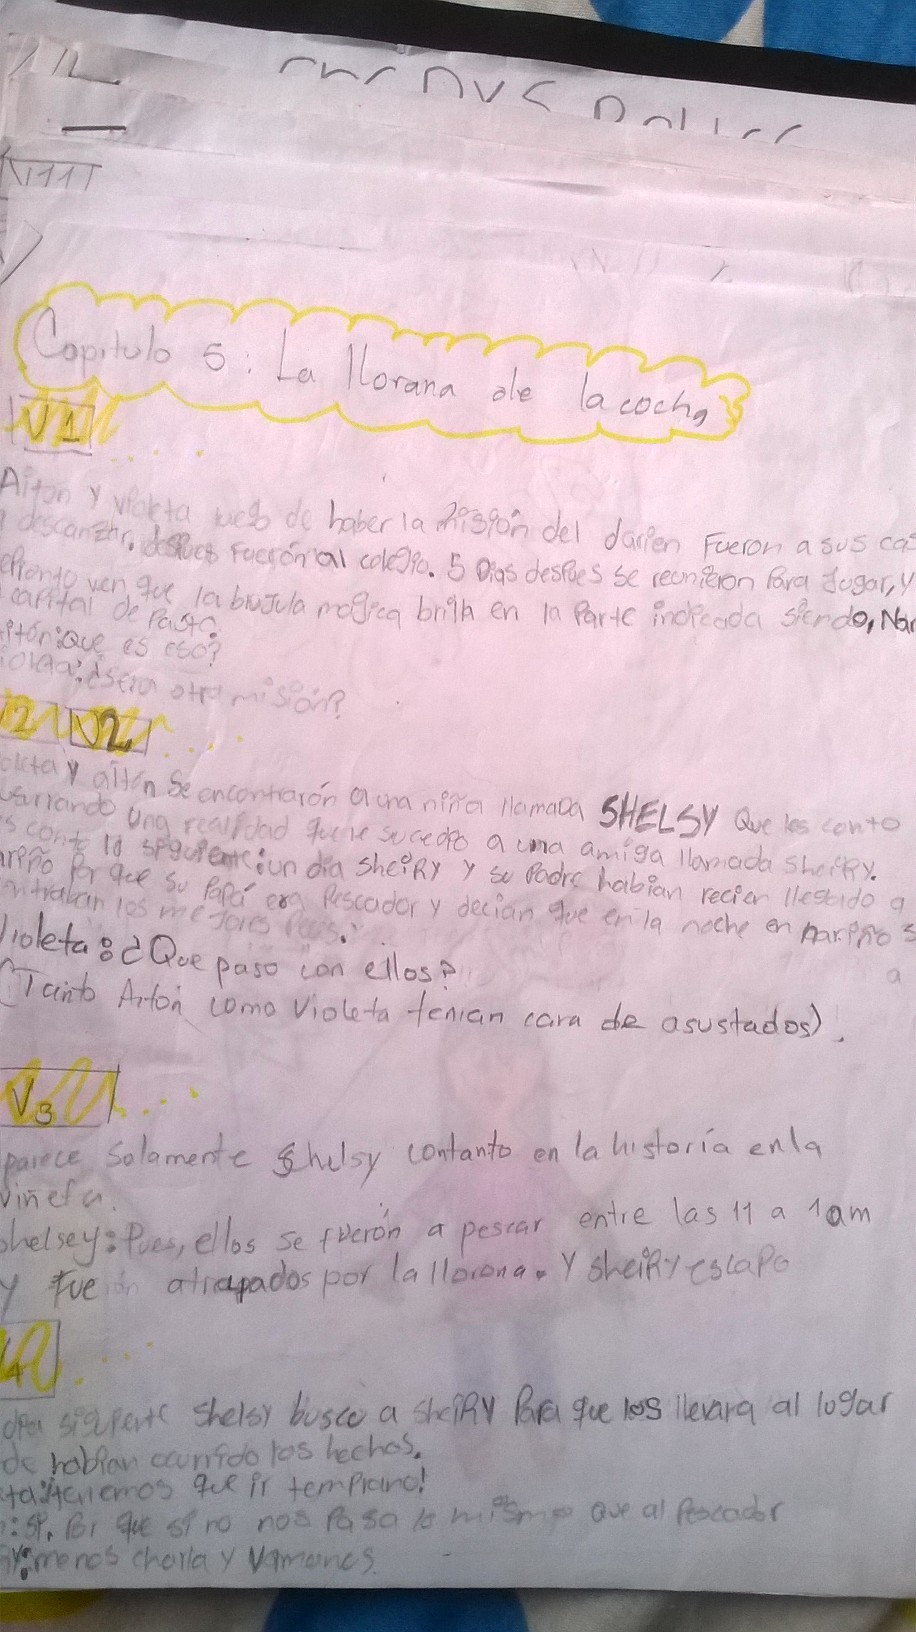 Capitulo 5: La llorana de la cocha
V1
Aiton y violeta lueGo de haber la misión del darien Fueron a sus cas
descanzar. despues Fuerón al colegio. 5 Dias despues se reunieron Para Jugar, y
Pronto ven que la brujula magica brilla en la Parte indicada siendo, Nar
capital de Pasto.
iton: que es eso?
ioleta: ¿sera otra misión?
V2
oleta y aiton Se encontrarón a una niña llamada SHELSY Que les conto
una realidad que le sucedio a una amiga llamada sheiRy.
s conto lo siguiente: un dia SheiRy y su Padre habian recien llegado a
ariño Por que su Papá era Pescador y decian que en la noche en nariño s
ontraban los mejores Peces.
Violeta: ¿Que paso con ellos?
a
(Tanto Aiton como Violeta tenian cara de asustados).
V3
parece Solamente Shelsy contanto en la historia en la
viñeta.
shelsey: Pues, ellos se fuerón a pescar entre las 11 a 1am
y fueron atrapados por la llorona. Y sheiRy escapo
4
dia siguiente Shelsy busco a sheiRy Para que los llevara al lugar
de habian ocurrido los hechos.
ta: tenemos que ir temprano!
: si, Por que si no nos Pasa lo mismo Que al Pescador
menos charla y vamonos.